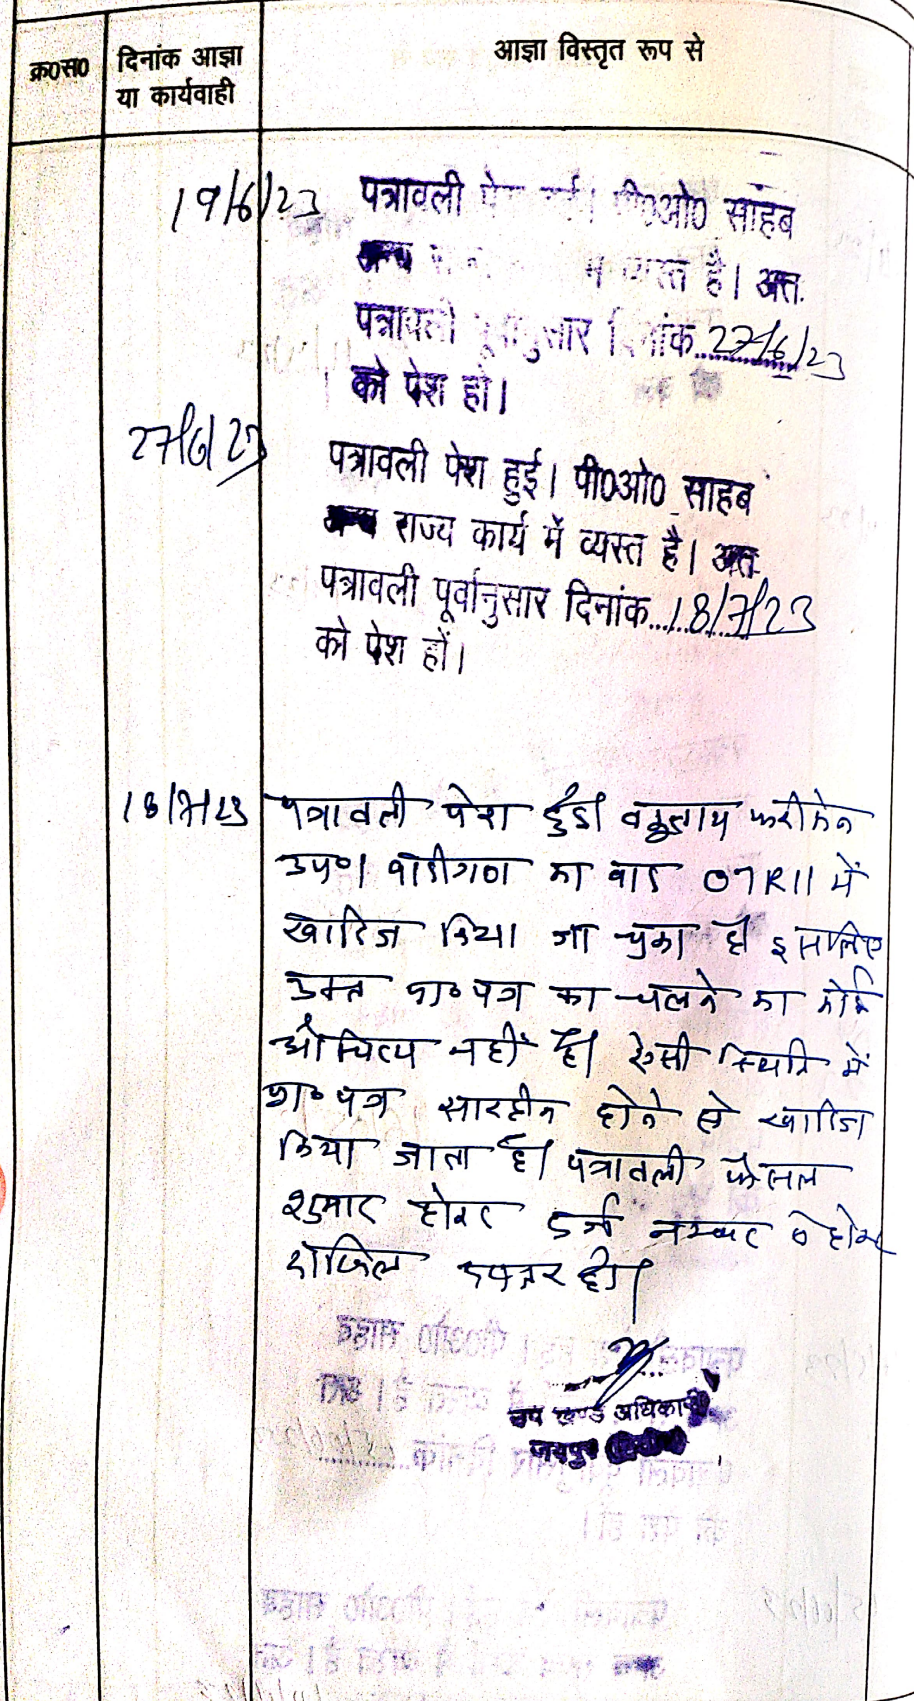 क्र०स०
दिनांक आज्ञा
या कार्यवाही
आज्ञा विस्तृत रूप से
19/6/23
पत्रावली पेश हुई। पी०ओ० साहब
अन्य में व्यस्त है। अत.
पत्रावली पूर्वानुसार दिनांक 27/6/23
को पेश हो।
27/6/23
पत्रावली पेश हुई। पी०ओ० साहब
अन्य राज्य कार्य में व्यस्त है। अत
पत्रावली पूर्वानुसार दिनांक 18/7/23
को पेश हों।
18/7/23
पत्रावली पेश हुई। वकुलाय फरीकेन
उप०। वादीगण का वाद O7R11 में
खारिज किया जा चुका है इसलिए
उक्त प्रा० पत्र का चलने का कोई
औचित्य नहीं है। ऐसी स्थिति में
प्रा० पत्र सारहीन होने से खारिज
किया जाता है। पत्रावली फैसल
शुमार होकर दर्ज नम्बर से होकर
दाखिल दफ्तर हो।
उप खण्ड अधिकारी
जयपुर